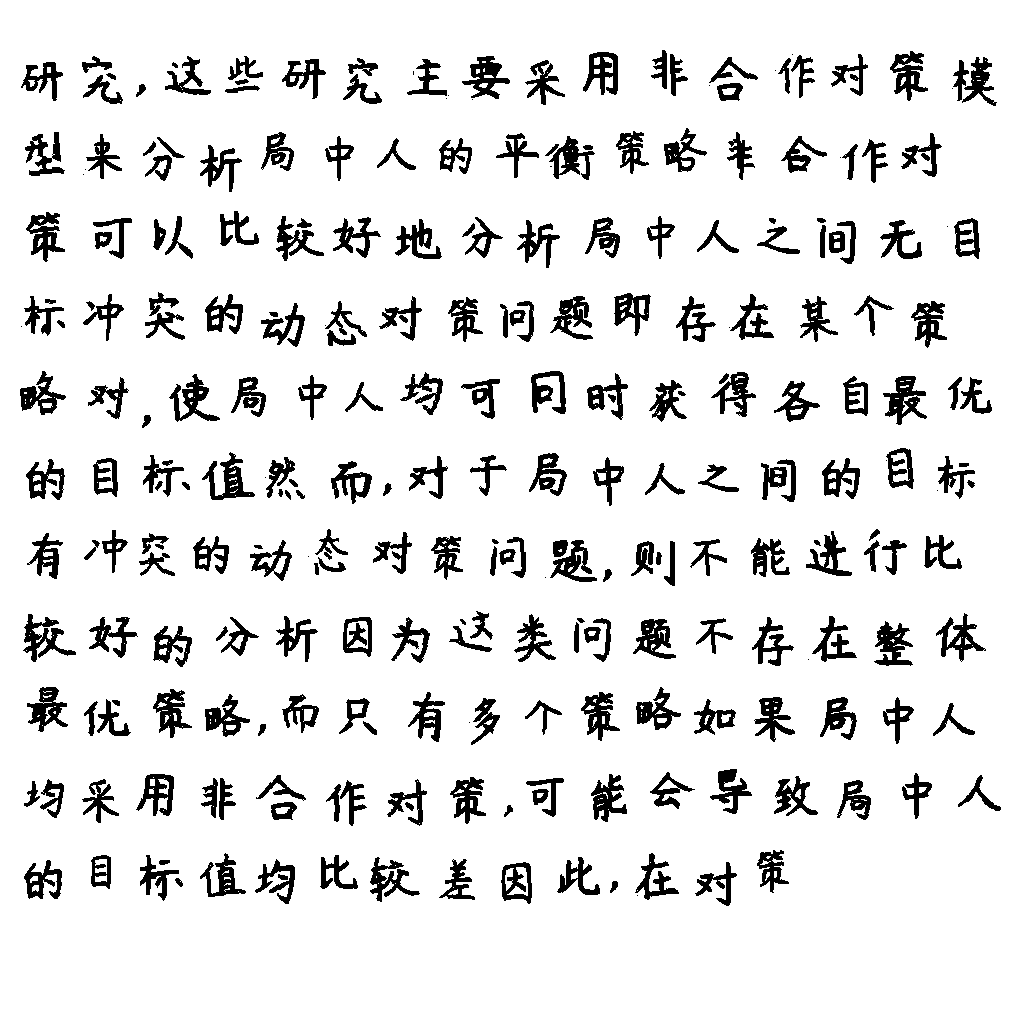 研究,这些研究主要采用非合作对策模
型来分析局中人的平衡策略非合作对
策可以比较好地分析局中人之间无目
标冲突的动态对策问题即存在某个策
略对,使局中人均可同时获得各自最优
的目标值然而,对于局中人之间的目标
有冲突的动态对策问题,则不能进行比
较好的分析因为这类问题不存在整体
最优策略,而只有多个策略如果局中人
均采用非合作对策,可能会导致局中人
的目标值均比较差因此,在对策